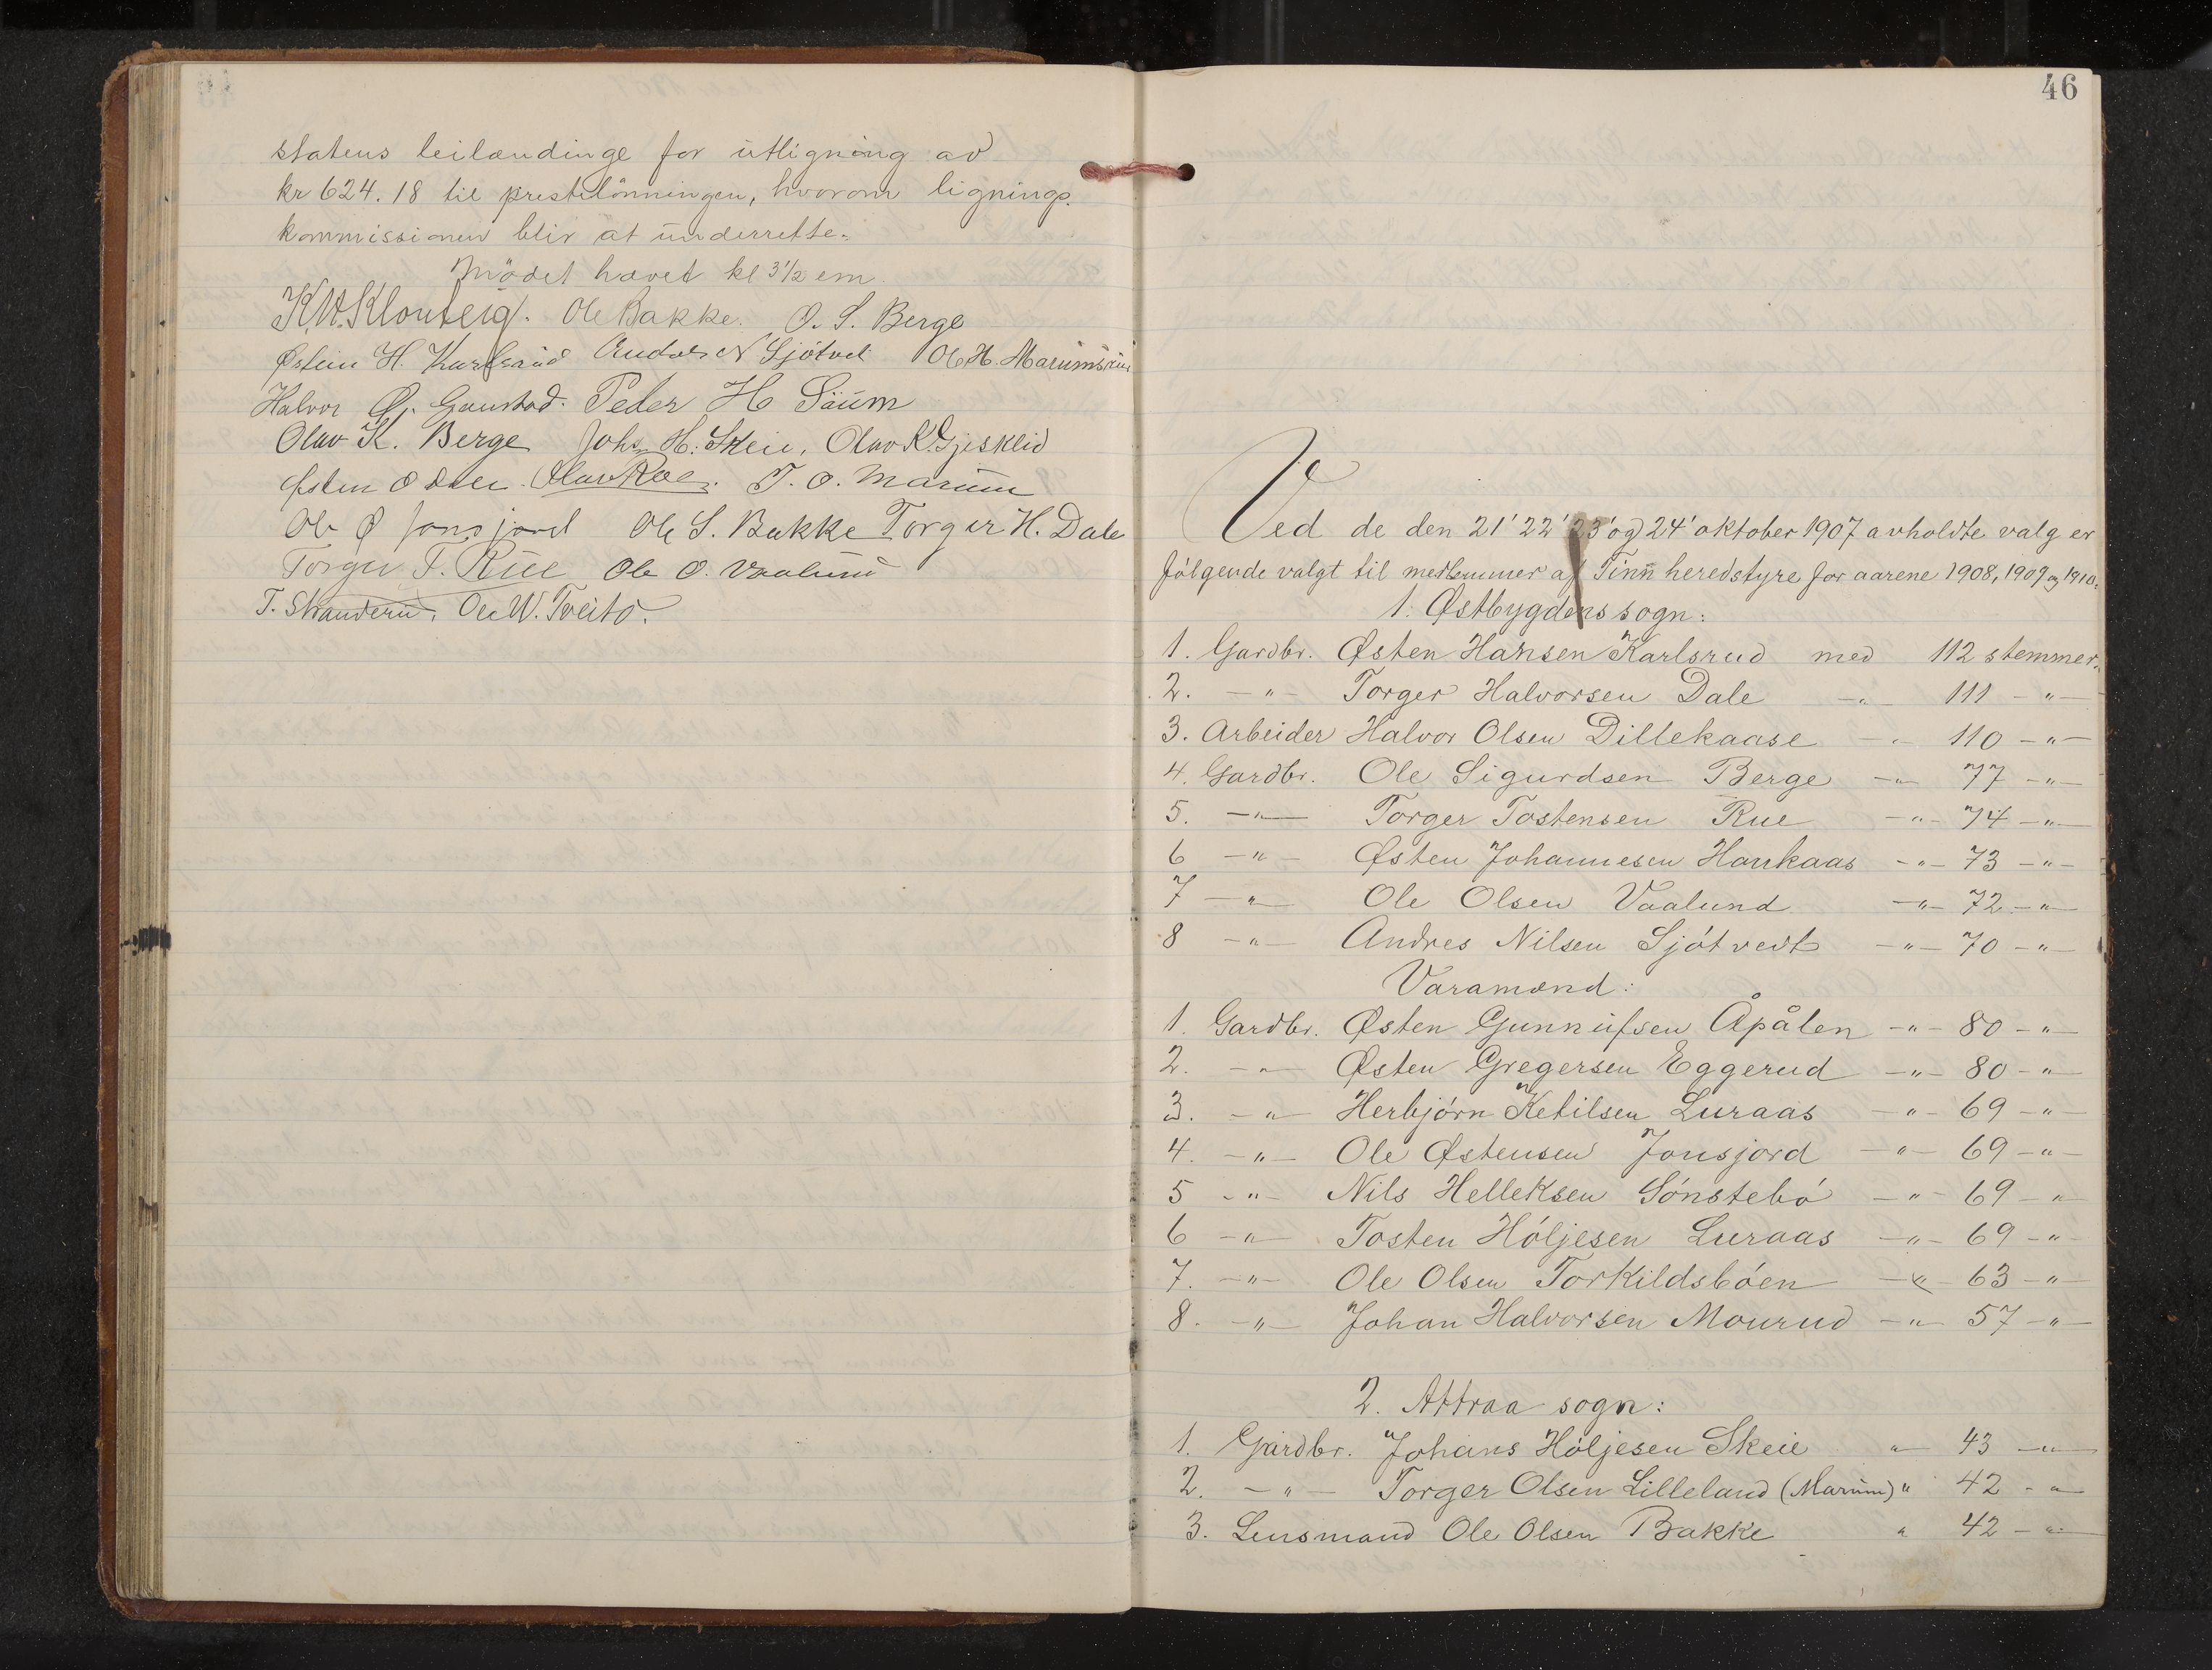 statens leilændinge for utligning av
kr 624.18 til prestelönningen, hvorom lignings-
kommissionen blir at underrette.
Mödet hævet kl 3½ em.
K. Kloumteig. Ole Bakke. O. S. Berge
Østein H. Karlsrud Andres N Sjötvet Ole H. Marumsrud
Halvor Gaustad. Peder H Saüm
Olav K. Berge Johs H. Skeie, Olav K. Gjesklid
Østen Olav Roe. T. O. Marüm
Ole Ø Jonsjord Ole S. Bakke Torger H. Dale
Torger T. Rue Ole O. Vaalund
T. Skaudern. Ole W. Tveito.
46
Ved de den 21' 22' 23' og 24' oktober 1907 avholdte valg er
følgende valgt til medlemmer af Tinn heredstyre for aarene 1908, 1909 og 1910.
1. Østbygdens sogn:
1. Gardbr. Østen Hansen Karlsrud med 112 stemmer.
2. -"- Torger Halvorsen Dale -"- 111 -"-
3. Arbeider Halvor Olsen Dillekaase -"- 110 -"-
4. Gardbr. Ole Sigurdsen Berge -"- 77 -"-
5. -"- Torger Tostensen Rue -"- 74 -"-
6 -"- Østen Johannesen Haukaas -"- 73 -"-
7 -"- Ole Olsen Vaalund -"- 72 -"-
8 -"- Andres Nilsen Sjótvedt -"- 70 -"-
Varamænd:
1. Gardbr. Østen Gunnulfsen Åpålen -"- 80 -"-
2. -"- Østen Gregersen Eggerud -"- 80 -"-
3. -"- Herbjórn Ketilsen Luraas -"- 69 -"-
4. -"- Ole Østensen Jonsjord -"- 69 -"-
5 -"- Nils Helleksen Sónstebó -"- 69 -"-
6 -"- Tosten Hóljesen Luraas -"- 69 -"-
7. -"- Ole Olsen Torkildsbóen -"- 63 -"-
8. -"- Johan Halvorsen Mourud -"- 57 -"-
2. Attraa sogn:
1. Gardbr. Johans Hóljesen Skeie " 43 -"-
2. -"- Torger Olsen Lilleland (Marüm) " 42 -"-
3. Lensmand Ole Olsen Bakke " 42 -"-